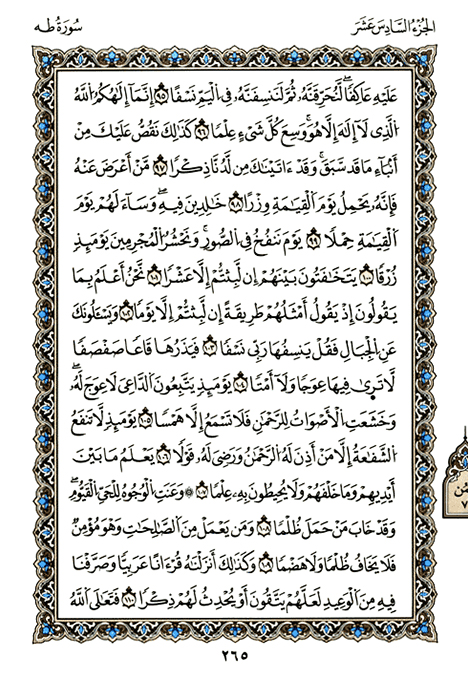 الجزء السادس عشر
سورة طه
عَلَيْهِ عَاكِفًا لَنُحَرِّقَنَّهُ ثُمَّ لَنَنسِفَنَّهُ فِي الْيَمِّ نَسْفًا ٩٥ إِنَّمَا إِلَهُكُمُ اللَّهُ
الَّذِي لَا إِلَهَ إِلَّا هُوَ وَسِعَ كُلَّ شَيْءٍ عِلْمًا ٩٦ كَذَلِكَ نَقُصُّ عَلَيْكَ مِنْ
أَنْبَاءِ مَا قَدْ سَبَقَ وَقَدْ ءَاتَيْنَاكَ مِن لَّدُنَّا ذِكْرًا ٩٧ مَّنْ أَعْرَضَ عَنْهُ
فَإِنَّهُ يَحْمِلُ يَوْمَ الْقِيَامَةِ وِزْرًا ٩٨ خَالِدِينَ فِيهِ وَسَاءَ لَهُمْ يَوْمَ
الْقِيَامَةِ حِمْلًا ٩٩ يَوْمَ نَنفُخُ فِي الصُّورِ وَنَحْشُرُ الْمُجْرِمِينَ يَوْمَئِذٍ
زُرْقًا ١٠٠ يَتَخَافَتُونَ بَيْنَهُمْ إِن لَّبِثْتُمْ إِلَّا عَشْرًا ١٠١ نَّحْنُ أَعْلَمُ بِمَا
يَقُولُونَ إِذْ يَقُولُ أَمْثَلُهُمْ طَرِيقَةً إِن لَّبِثْتُمْ إِلَّا يَوْمًا ١٠٢ وَيَسْـَٔلُونَكَ
عَنِ الْجِبَالِ فَقُلْ يَنسِفُهَا رَبِّي نَسْفًا ١٠٣ فَيَذَرُهَا قَاعًا صَفْصَفًا
لَّا تَرَى فِيهَا عِوَجًا وَلَا أَمْتًا ١٠٤ يَوْمَئِذٍ يَتَّبِعُونَ الدَّاعِيَ لَا عِوَجَ لَهُ
وَخَشَعَتِ الْأَصْوَاتُ لِلرَّحْمَٰنِ فَلَا تَسْمَعُ إِلَّا هَمْسًا ١٠٥ يَوْمَئِذٍ لَّا تَنفَعُ
الشَّفَاعَةُ إِلَّا مَنْ أَذِنَ لَهُ الرَّحْمَٰنُ وَرَضِيَ لَهُ قَوْلًا ١٠٦ يَعْلَمُ مَا بَيْنَ
أَيْدِيهِمْ وَمَا خَلْفَهُمْ وَلَا يُحِيطُونَ بِهِ عِلْمًا ١٠٧ ۞ وَعَنَتِ الْوُجُوهُ لِلْحَيِّ الْقَيُّومِ
وَقَدْ خَابَ مَنْ حَمَلَ ظُلْمًا ١٠٨ وَمَن يَعْمَلْ مِنَ الصَّالِحَاتِ وَهْوَ مُؤْمِنٌ
فَلَا يَخَافُ ظُلْمًا وَلَا هَضْمًا ١٠٩ وَكَذَلِكَ أَنزَلْنَاهُ قُرْءَانًا عَرَبِيًّا وَصَرَّفْنَا
فِيهِ مِنَ الْوَعِيدِ لَعَلَّهُمْ يَتَّقُونَ أَوْ يُحْدِثُ لَهُمْ ذِكْرًا ١١٠ فَتَعَالَى اللَّهُ
٢٦٥